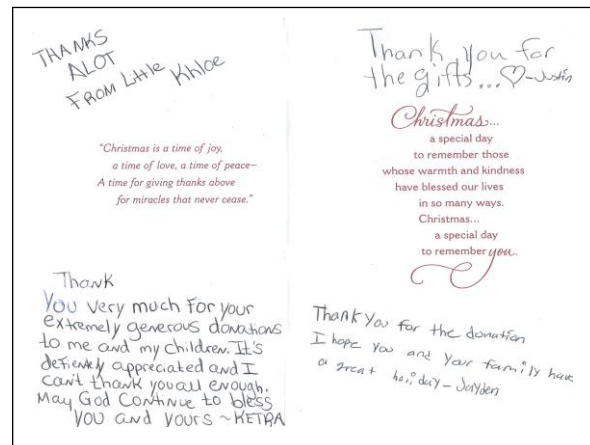 THANKS
ALOT
FROM Little Khloe
"Christmas is a time of joy,
a time of love, a time of peace–
A time for giving thanks above
for miracles that never cease."
Thank
You very much for your
extremely generous donations
to me and my children. It's
defientely appreciated and I
can't thank you all enough.
May God Continue to bless
YOU and YOURS ~KETRA
Thank you for
the gifts...♡-Justin
Christmas...
a special day
to remember those
whose warmth and kindness
have blessed our lives
in so many ways.
Christmas...
a special day
to remember you.
Thank You for the donation
I hope you and your family have
a great holiday - Jayden